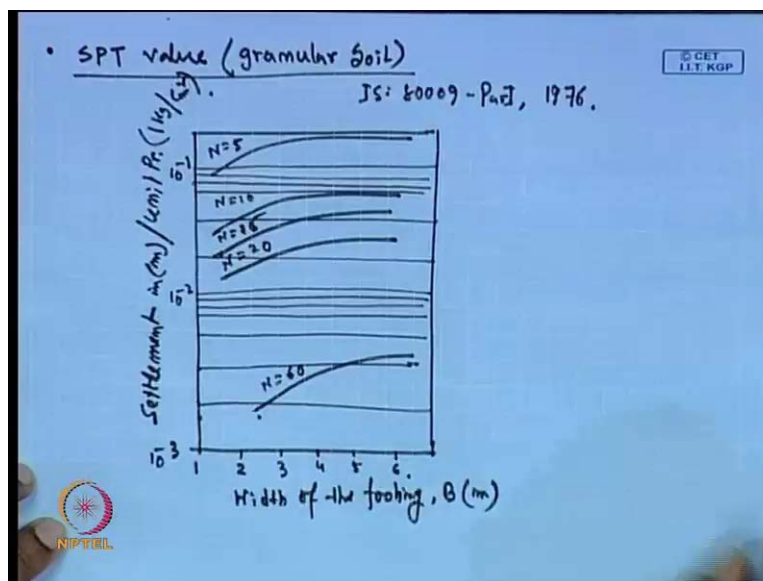 • SPT value (granular Soil)
© CET
I.I.T. KGP
IS: 80009 - Part I, 1976.
Settlement in (m) / unit Pr. (1 kg/cm²).
N=5
10⁻¹
N=10
N=15
N=20
10⁻²
N=60
10⁻³
1 2 3 4 5 6
Width of the footing, B (m)
NPTEL